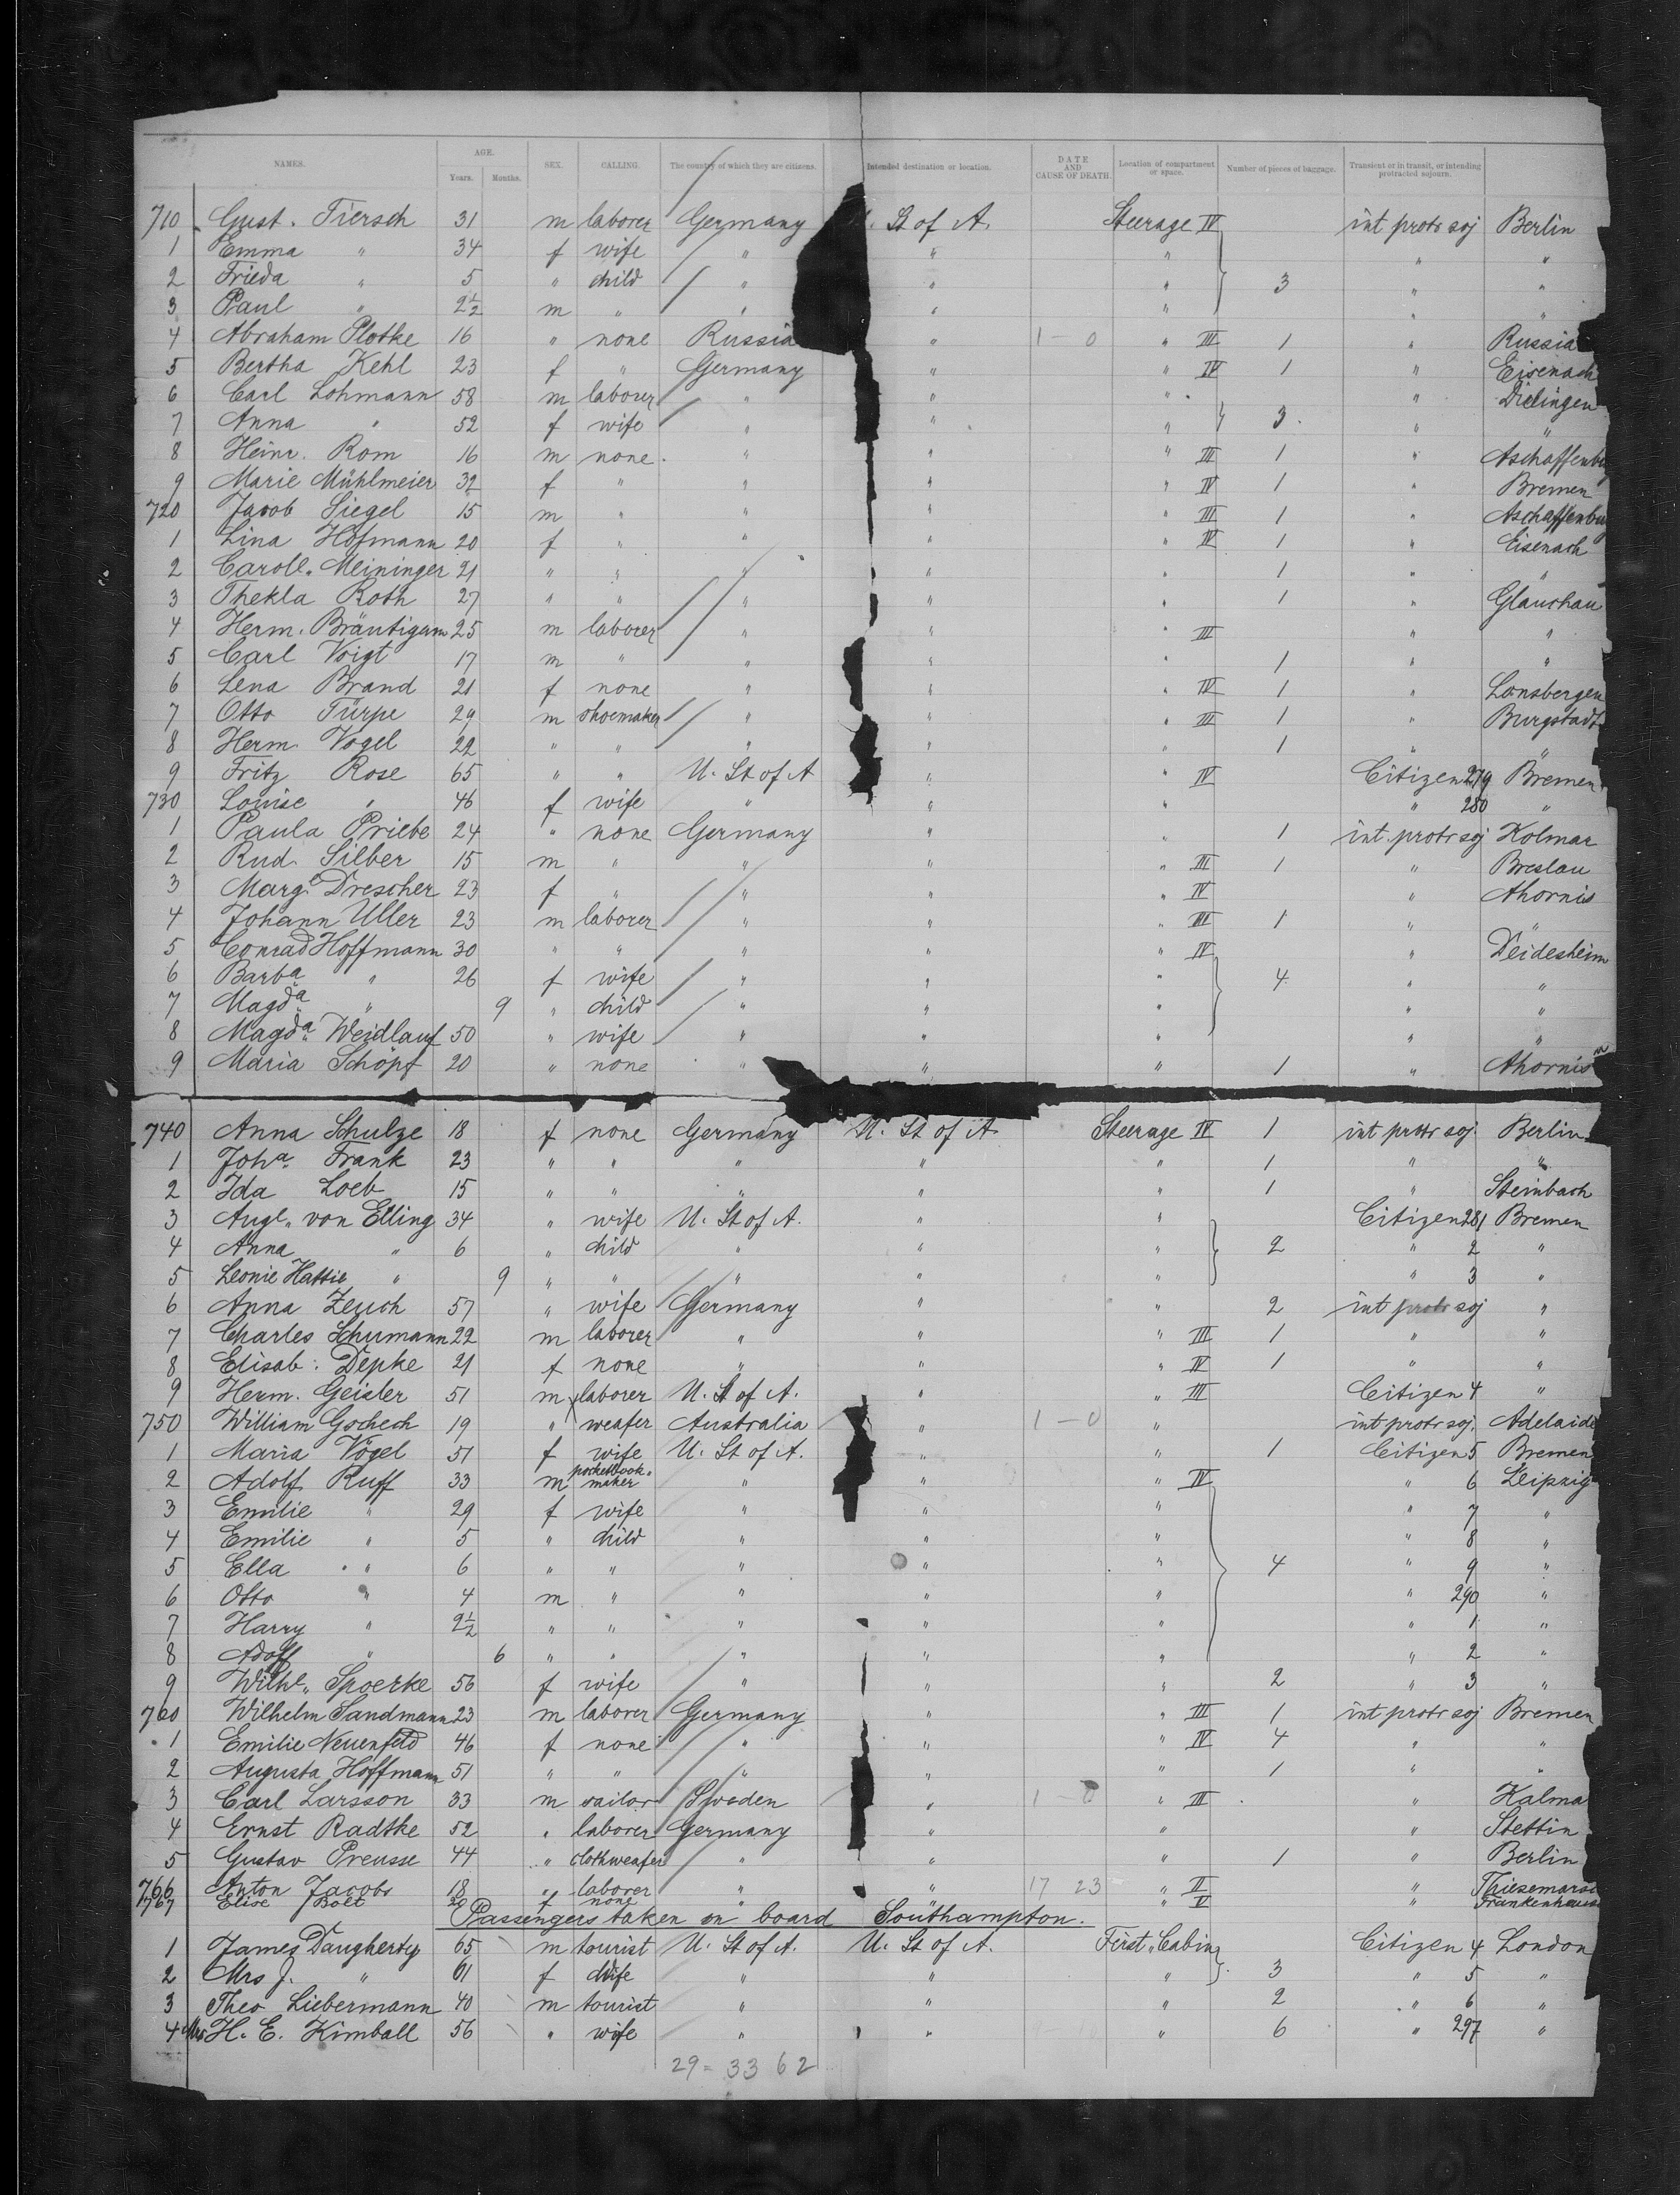 NAMES. AGE. Years. Months. SEX. CALLING. The country of which they are citizens. Intended destination or location. DATE AND CAUSE OF DEATH. Location of compartment or space. Number of pieces of baggage. Transient or in transit, or intending protracted sojourn.
710 Gust. Tiersch 31 m laborer Germany St of A. Steerage IV int protr soj Berlin
1 Emma " 34 f wife " " " " "
2 Frieda " 5 " child " " " 3 " "
3 Paul " 2½ m " " " " " "
4 Abraham Plotke 16 " none Russia " 1 - 0 " III 1 " Russia
5 Bertha Kehl 23 f " Germany " " IV 1 " Eisenach
6 Carl Lohmann 58 m laborer " " " " Dielingen
7 Anna " 52 f wife " " " 3 " "
8 Heinr. Rom 16 m none " " " III 1 " Aschaffenbu
9 Marie Mühlmeier 32 f " " " " IV 1 " Bremen
720 Jacob Siegel 15 m " " " " III 1 " Aschaffenbu
1 Lina Hofmann 20 f " " " " IV 1 " Eisenach
2 Caroll. Meininger 21 " " " " " 1 " "
3 Thekla Roth 27 " " " " " 1 " Glauchau
4 Herm. Bräutigam 25 m laborer " " " III " "
5 Carl Voigt 17 m " " " " 1 " "
6 Lena Brand 21 f none " " " IV 1 " Lonsbergen
7 Otto Türpe 29 m shoemaker " " " III 1 " Burgstadt
8 Herm. Vogel 22 " " " " " 1 " "
9 Fritz Rose 65 " " U. St of A " " IV Citizen 279 Bremen
730 Louise " 46 f wife " " " " 280 "
1 Paula Priebe 24 " none Germany " " 1 int. protr soj Kolmar
2 Rud. Silber 15 m " " " " III 1 " Breslau
3 Marg. Drescher 23 f " " " " IV " Ahornis
4 Johann Uller 23 m laborer " " " III 1 " "
5 Conrad Hoffmann 30 " " " " " IV " Deidesheim
6 Barba " 26 f wife " " " 4 " "
7 Magda " 9 " child " " " " "
8 Magda Weidlauf 50 " wife " " " " "
9 Maria Schöpf 20 " none " " " 1 " Ahornis
740 Anna Schulze 18 f none Germany U. St of A Steerage IV 1 int protr soj. Berlin
1 Joha Frank 23 " " " " " 1 " "
2 Ida Loeb 15 " " " " " 1 " Steinbach
3 Augl. von Elling 34 " wife U. St of A. " " Citizen 281 Bremen
4 Anna " 6 " child " " " 2 " 2 "
5 Leonie Hattie " 9 " " " " " " 3 "
6 Anna Zeuch 57 " wife Germany " " 2 int protr soj "
7 Charles Schumann 22 m laborer " " " III 1 " "
8 Elisab: Depke 21 f none " " " IV 1 " "
9 Herm. Geisler 51 m laborer U. St of A. " " III Citizen 4 "
750 William Gschech 19 " weafer Australia " 1 - 0 " int protr soj. Adelaide
1 Maria Vogel 51 f wife U. St of A. " " 1 Citizen 5 Bremen
2 Adolf Ruff 33 m pocketbook- maker " " " IV " 6 Leipzig
3 Emilie " 29 f wife " " " " 7 "
4 Emilie " 5 " child " " " " 8 "
5 Ella " 6 " " " " " 4 " 9 "
6 Otto " 4 m " " " " " 290 "
7 Harry " 2½ " " " " " " 1 "
8 Adolf " 6 " " " " " " 2 "
9 Wilhl. Spoerke 56 f wife " " " 2 " 3 "
760 Wilhelm Sandmann 23 m laborer Germany " " III 1 int protr soj Bremen
1 Emilie Neuenfeld 46 f none " " " IV 4 " "
2 Augusta Hoffmann 51 " " " " " 1 " "
3 Carl Larsson 33 m sailor Sweden " 1 - 0 " III " Kalma
4 Ernst Radtke 52 " laborer Germany " " " Stettin
5 Gustav Preusse 44 " clothweafer " " " 1 " Berlin
766 Anton Jacobs 18 " laborer " " 17 23 " II "
767 Elise Bolt 20 f none " " " V " Frankenhause
Passengers taken on board Southampton.
1 James Daugherty 65 m tourist U. St of A. U. St of A. First Cabin Citizen 4 London
2 Mrs J. " 61 f wife " " " 3 " 5 "
3 Theo Liebermann 40 m tourist " " " 2 " 6 "
4 Mrs H. E. Kimball 56 " wife " " " 6 " 297 "
29 = 33 62